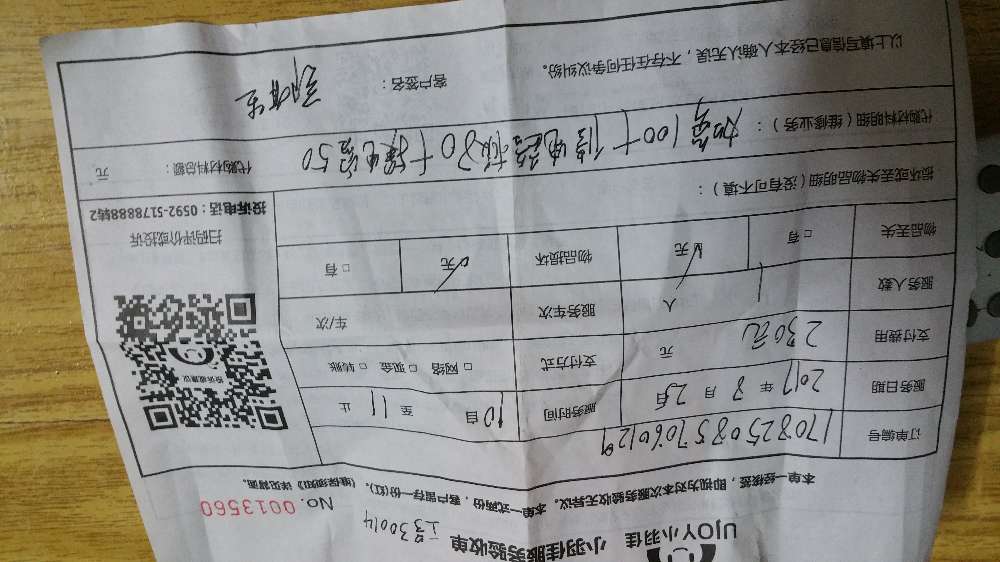 UJOY小羽佳 小羽佳服务验收单
工号30014
本单一经核签，即视为对本次服务验收无异议。本单一式两份，客户留存一份(红)。《维保须知》详见背面。
No. 0013560
订单编号 1708250857060129
服务日期 2017 年 8 月 25 日 服务时间 10 自 至 11 止
支付费用 230元 元 支付方式 □ 网络 □ 现金 □ 转账
服务人数 1 人 服务车次 车/次
物品丢失 □ 有 □ 无 物品损坏 □ 无 □ 有
投诉建议
扫码评价或投诉
投诉电话：0592-5178888转2
损坏或丢失物品明细（没有可不填）：
代购材料明细（维修业务）： 加氟100+ 80+ 电容50
代购材料总额： 元
以上填写信息已经本人确认无误，不存在任何争议纠纷。
客户签名：